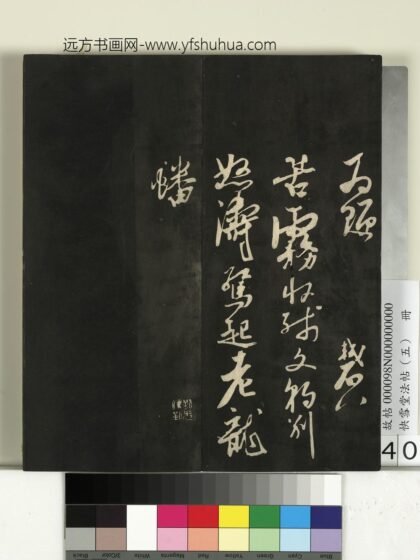 远方书画网-www.yfshuhua.com
苦霧收殘文豹別
怒濤驚起老龍
蟠
故帖 000098N000000000 冊
快雪堂法帖（五）
40
Black 3/Color White Magenta Red Yellow Green Cyan Blue